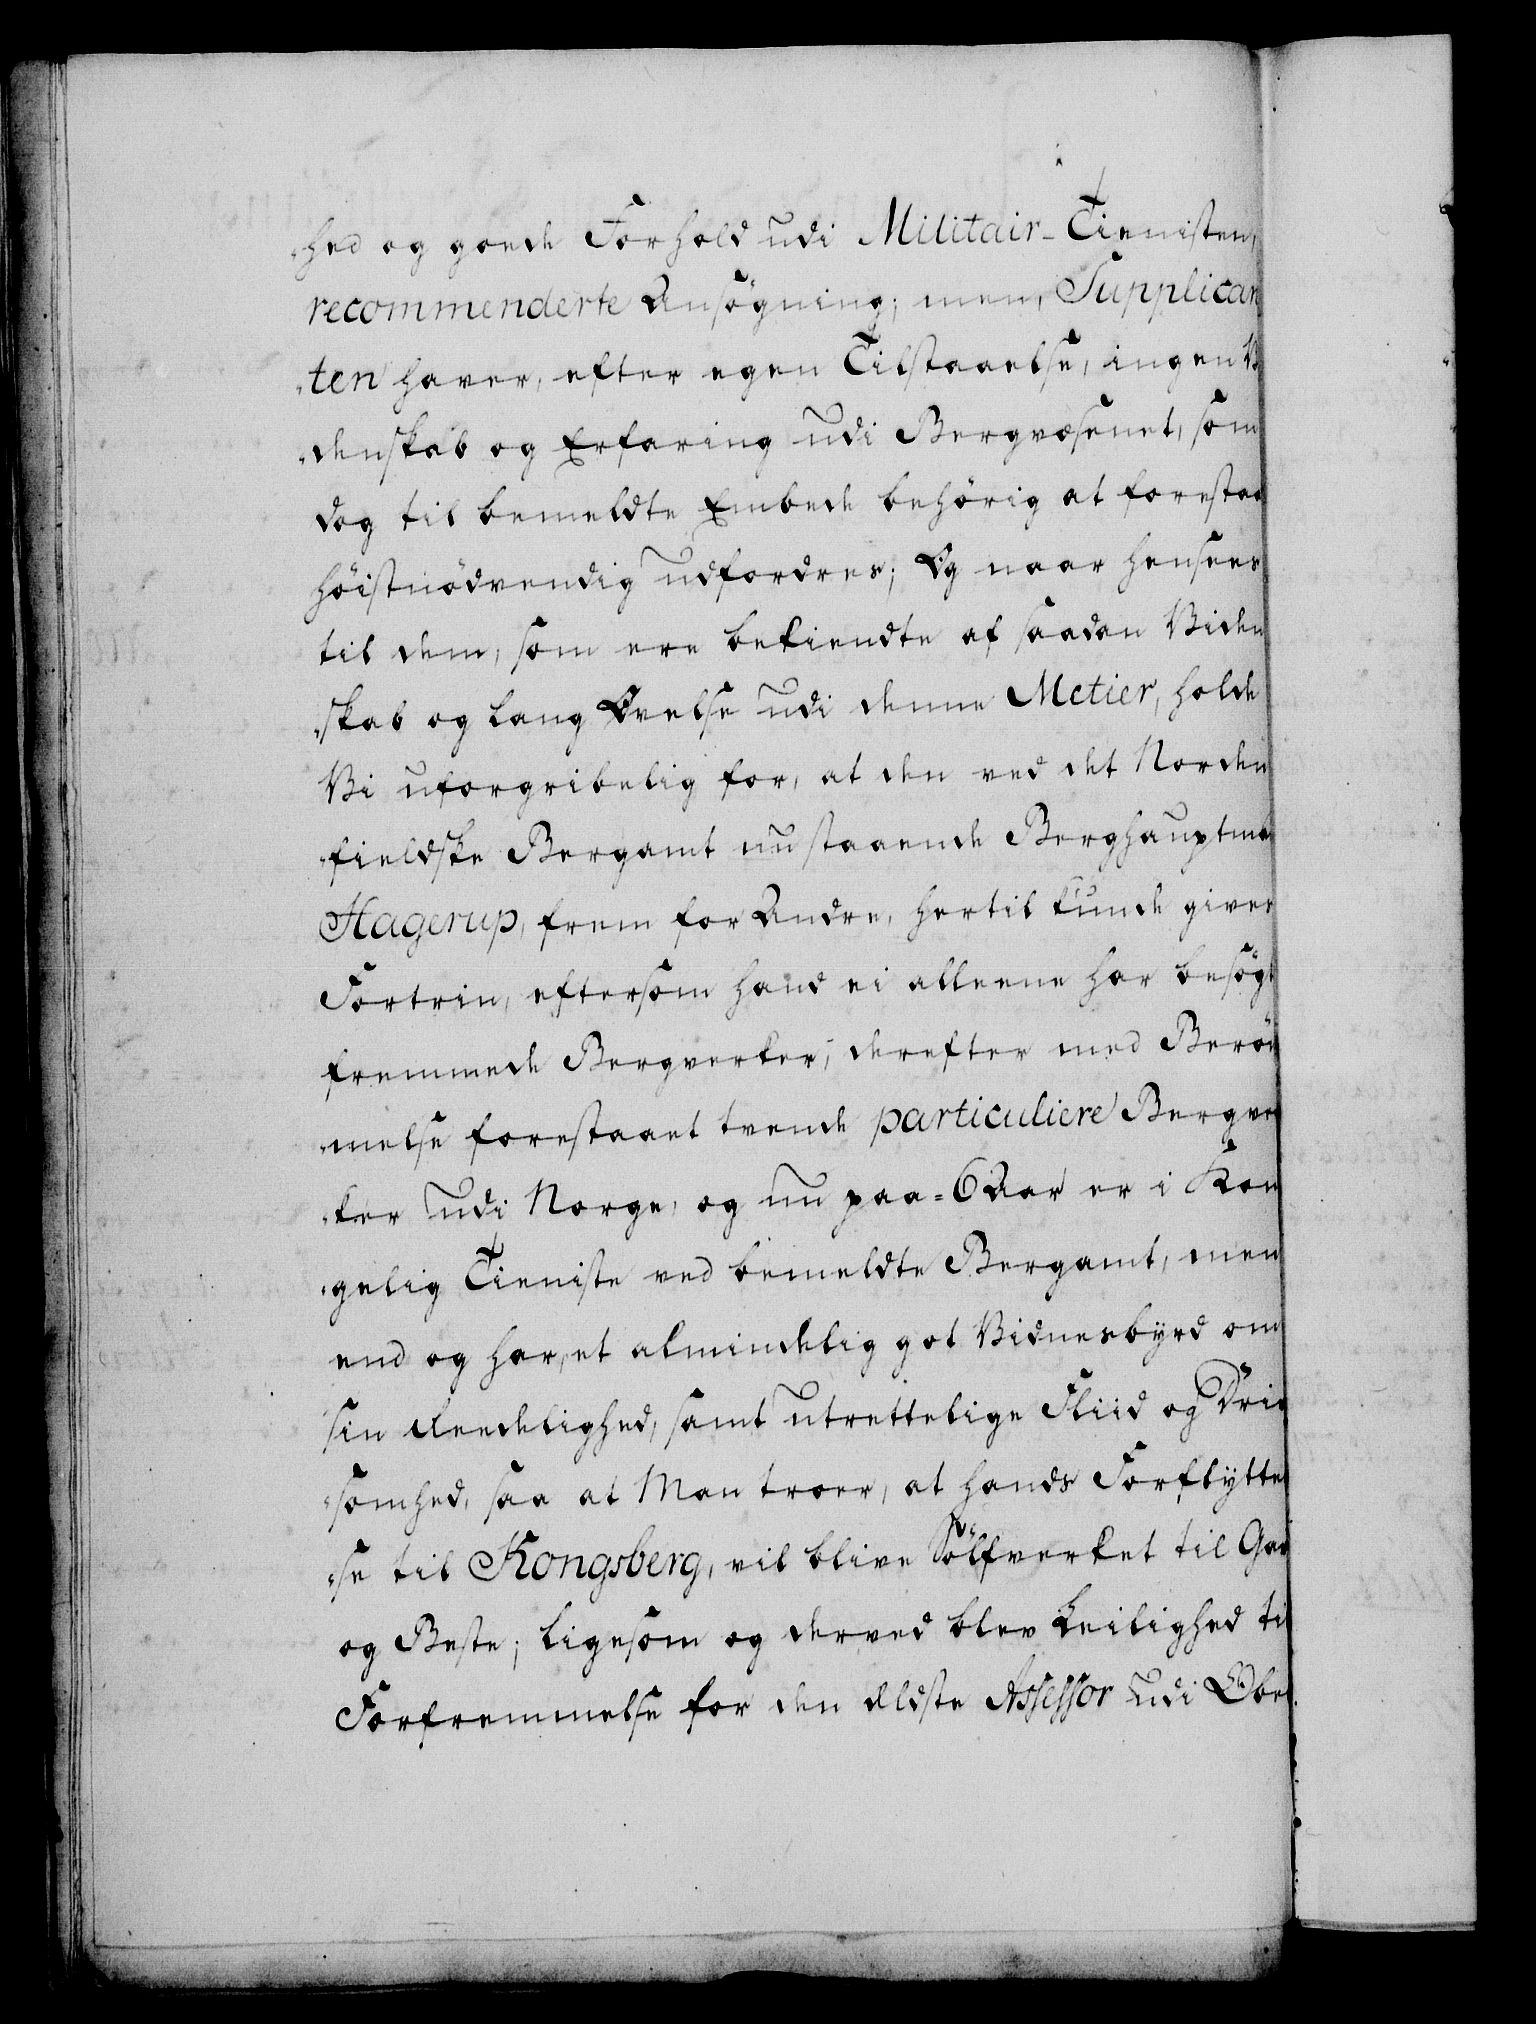 „hed og goede Forhold udi Militair-Tienisten,
recommenderte Ansøgning; men, Supplican
„ten haver, efter egen Tilstaaelse, ingen V
„denskab og Erfaring udi Bergvæsenet, som
dog til bemeldte Embede behörig at forestaa
höistnödvendig udfordres; Og naar hensees
til dem, som ere bekiendte af saadan Viden
„skab og lang Övelse udi denne Metier, holde
Vi uforgribelig for, at den ved det Norden
„fieldske Bergamt nu staaende Berghauptma
Hagerup, frem for Andre, hertil kunde gives
Fortrin, eftersom hand ei alleene har besögt
fremmede Bergverker, derefter med Beröm
„melse forestaaet tvende particuliere Bergver
„ker udi Norge, og nu paa=6 Aar er i Kon
„gelig Tieniste ved bemeldte Bergamt, men
end og har, et almindelig got Vidnesbyrd om
sin Reedelighed, samt utrettelige Fliid og Driv
„somhed, saa at Man troer, at hands Forflyttel
„se til Kongsberg, vil blive Sölfverket til Gav
og Beste; ligesom og derved blev Leilighed til
Forfremmelse for den Eldste Assessor udi Ober